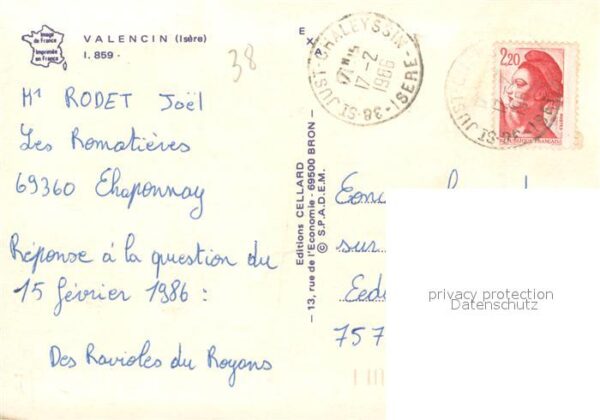 Image
de France
Imprimée
en France
VALENCIN (Isère)
I. 859 -
38
Mr RODET Joël
Les Romatières
69360 Chaponnay
Réponse à la question du
15 février 1986 :
Des Ravioles du Royans
Editions CELLARD
- 13, rue de l'Economie - 69500 BRON -
© S.P.A.D.E.M.
EXA
38-ST JUST CHALEYSSIN-
17H
17-2
1986
-ISERE-
2,20
Conc
sur
Cede
757
privacy protection
Datenschutz